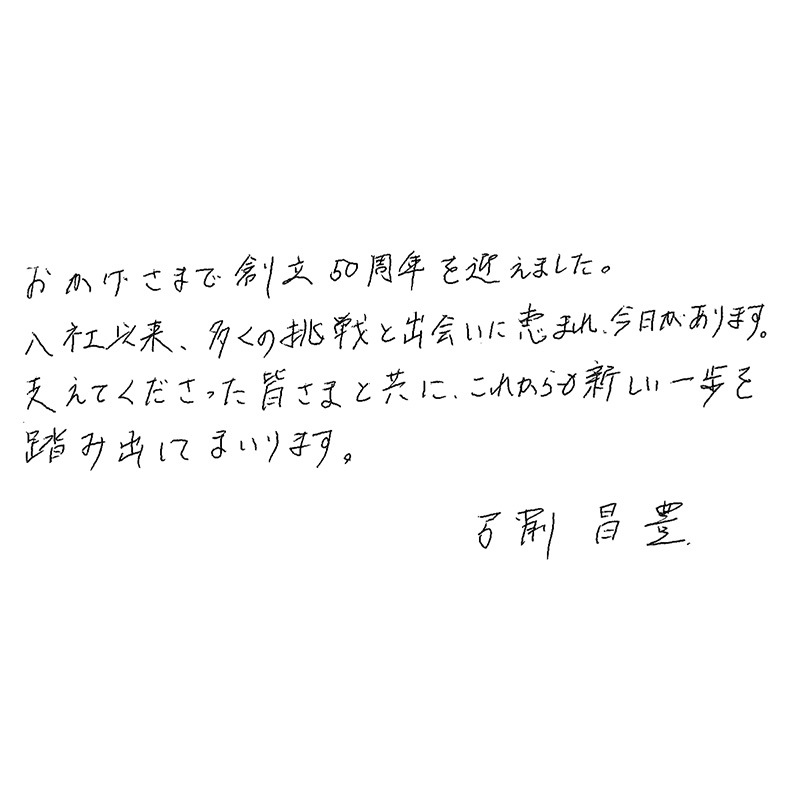 おかげさまで創立50周年を迎えました。
入社以来、多くの挑戦と出会いに恵まれ、今日があります。
支えてくださった皆さまと共に、これからも新しい一歩を
踏み出してまいります。
昌豊